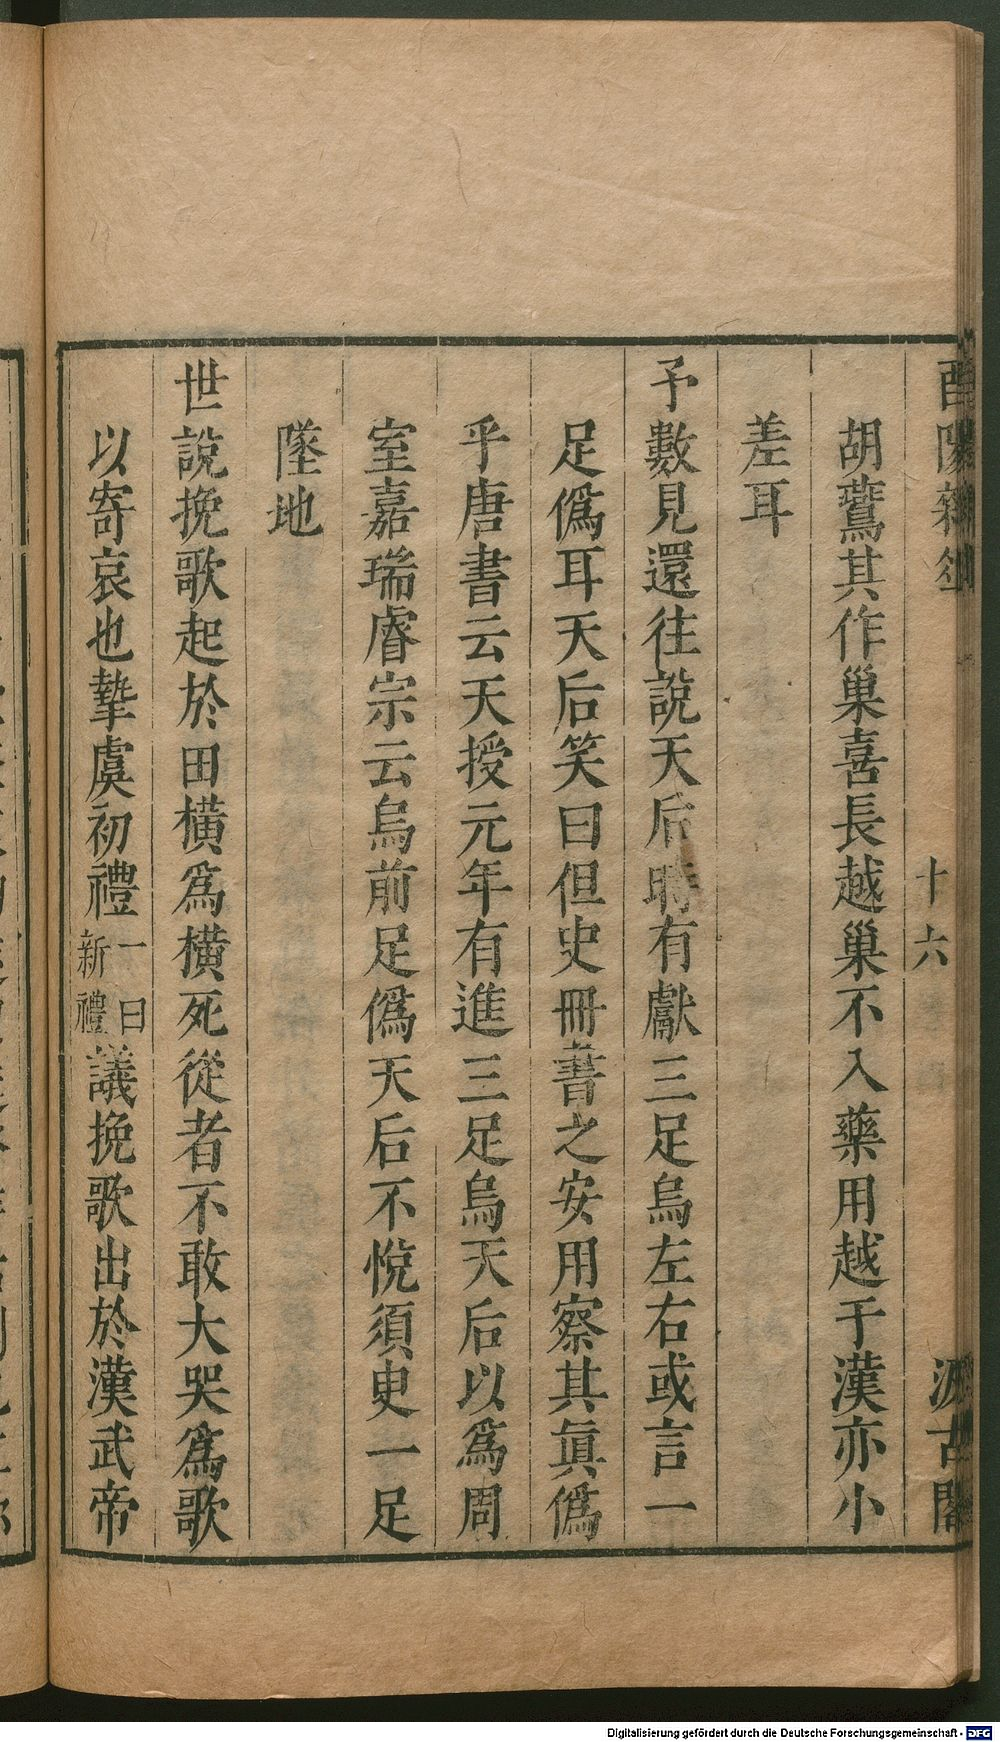 酉陽雜俎
十六
汲古閣
胡鷰其作巢喜長越巢不入藥用越于漢亦小
差耳
予數見還往說天后時有獻三足烏左右或言一
足僞耳天后笑曰但史冊書之安用察其眞僞
乎唐書云天授元年有進三足烏天后以爲周
室嘉瑞睿宗云烏前足僞天后不悅須臾一足
墜地
世說挽歌起於田橫爲橫死從者不敢大哭爲歌
以寄哀也摯虞初禮一曰新禮議挽歌出於漢武帝
Digitalisierung gefördert durch die Deutsche Forschungsgemeinschaft - DFG